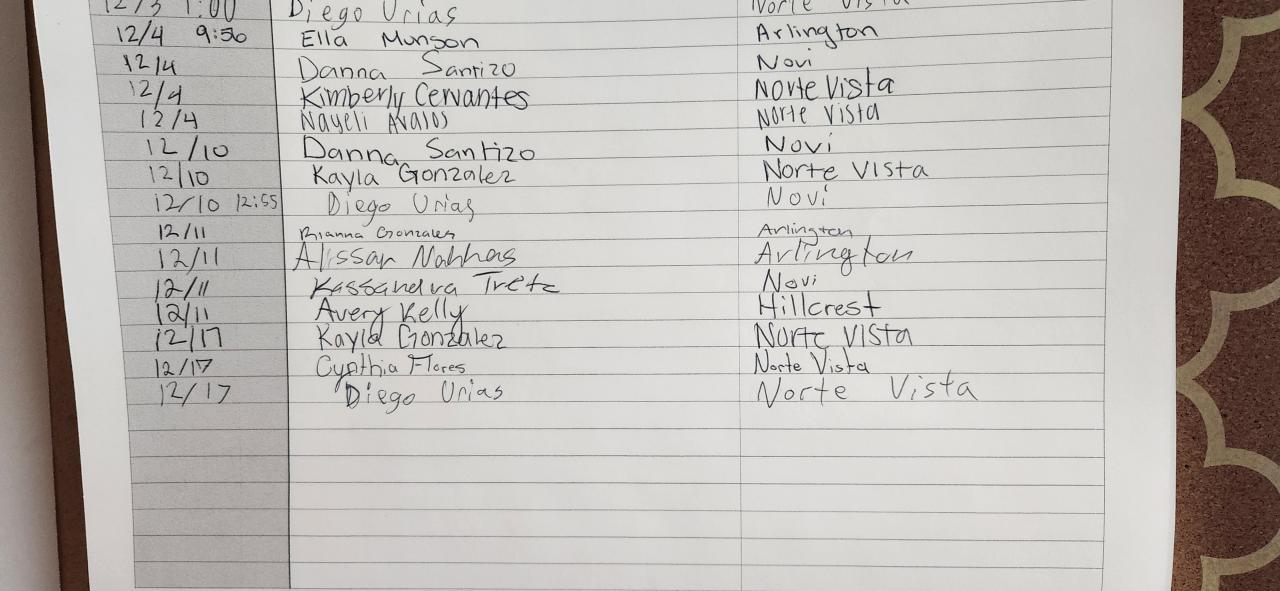 12/3 1:00 Diego Urias Norte Vista
12/4 9:50 Ella Munson Arlington
12/4 Danna Santizo Novi
12/4 Kimberly Cervantes Norte Vista
12/4 Nayeli Avalos Norte Vista
12/10 Danna Santizo Novi
12/10 Kayla Gonzalez Norte Vista
12/10 12:55 Diego Urias Novi
12/11 Brianna Gonzales Arlington
12/11 Alissar Nahhas Arlington
12/11 Kassandra Novi
12/11 Avery Kelly Hillcrest
12/17 Kayla Gonzalez Norte Vista
12/17 Cynthia Flores Norte Vista
12/17 Diego Urias Norte Vista